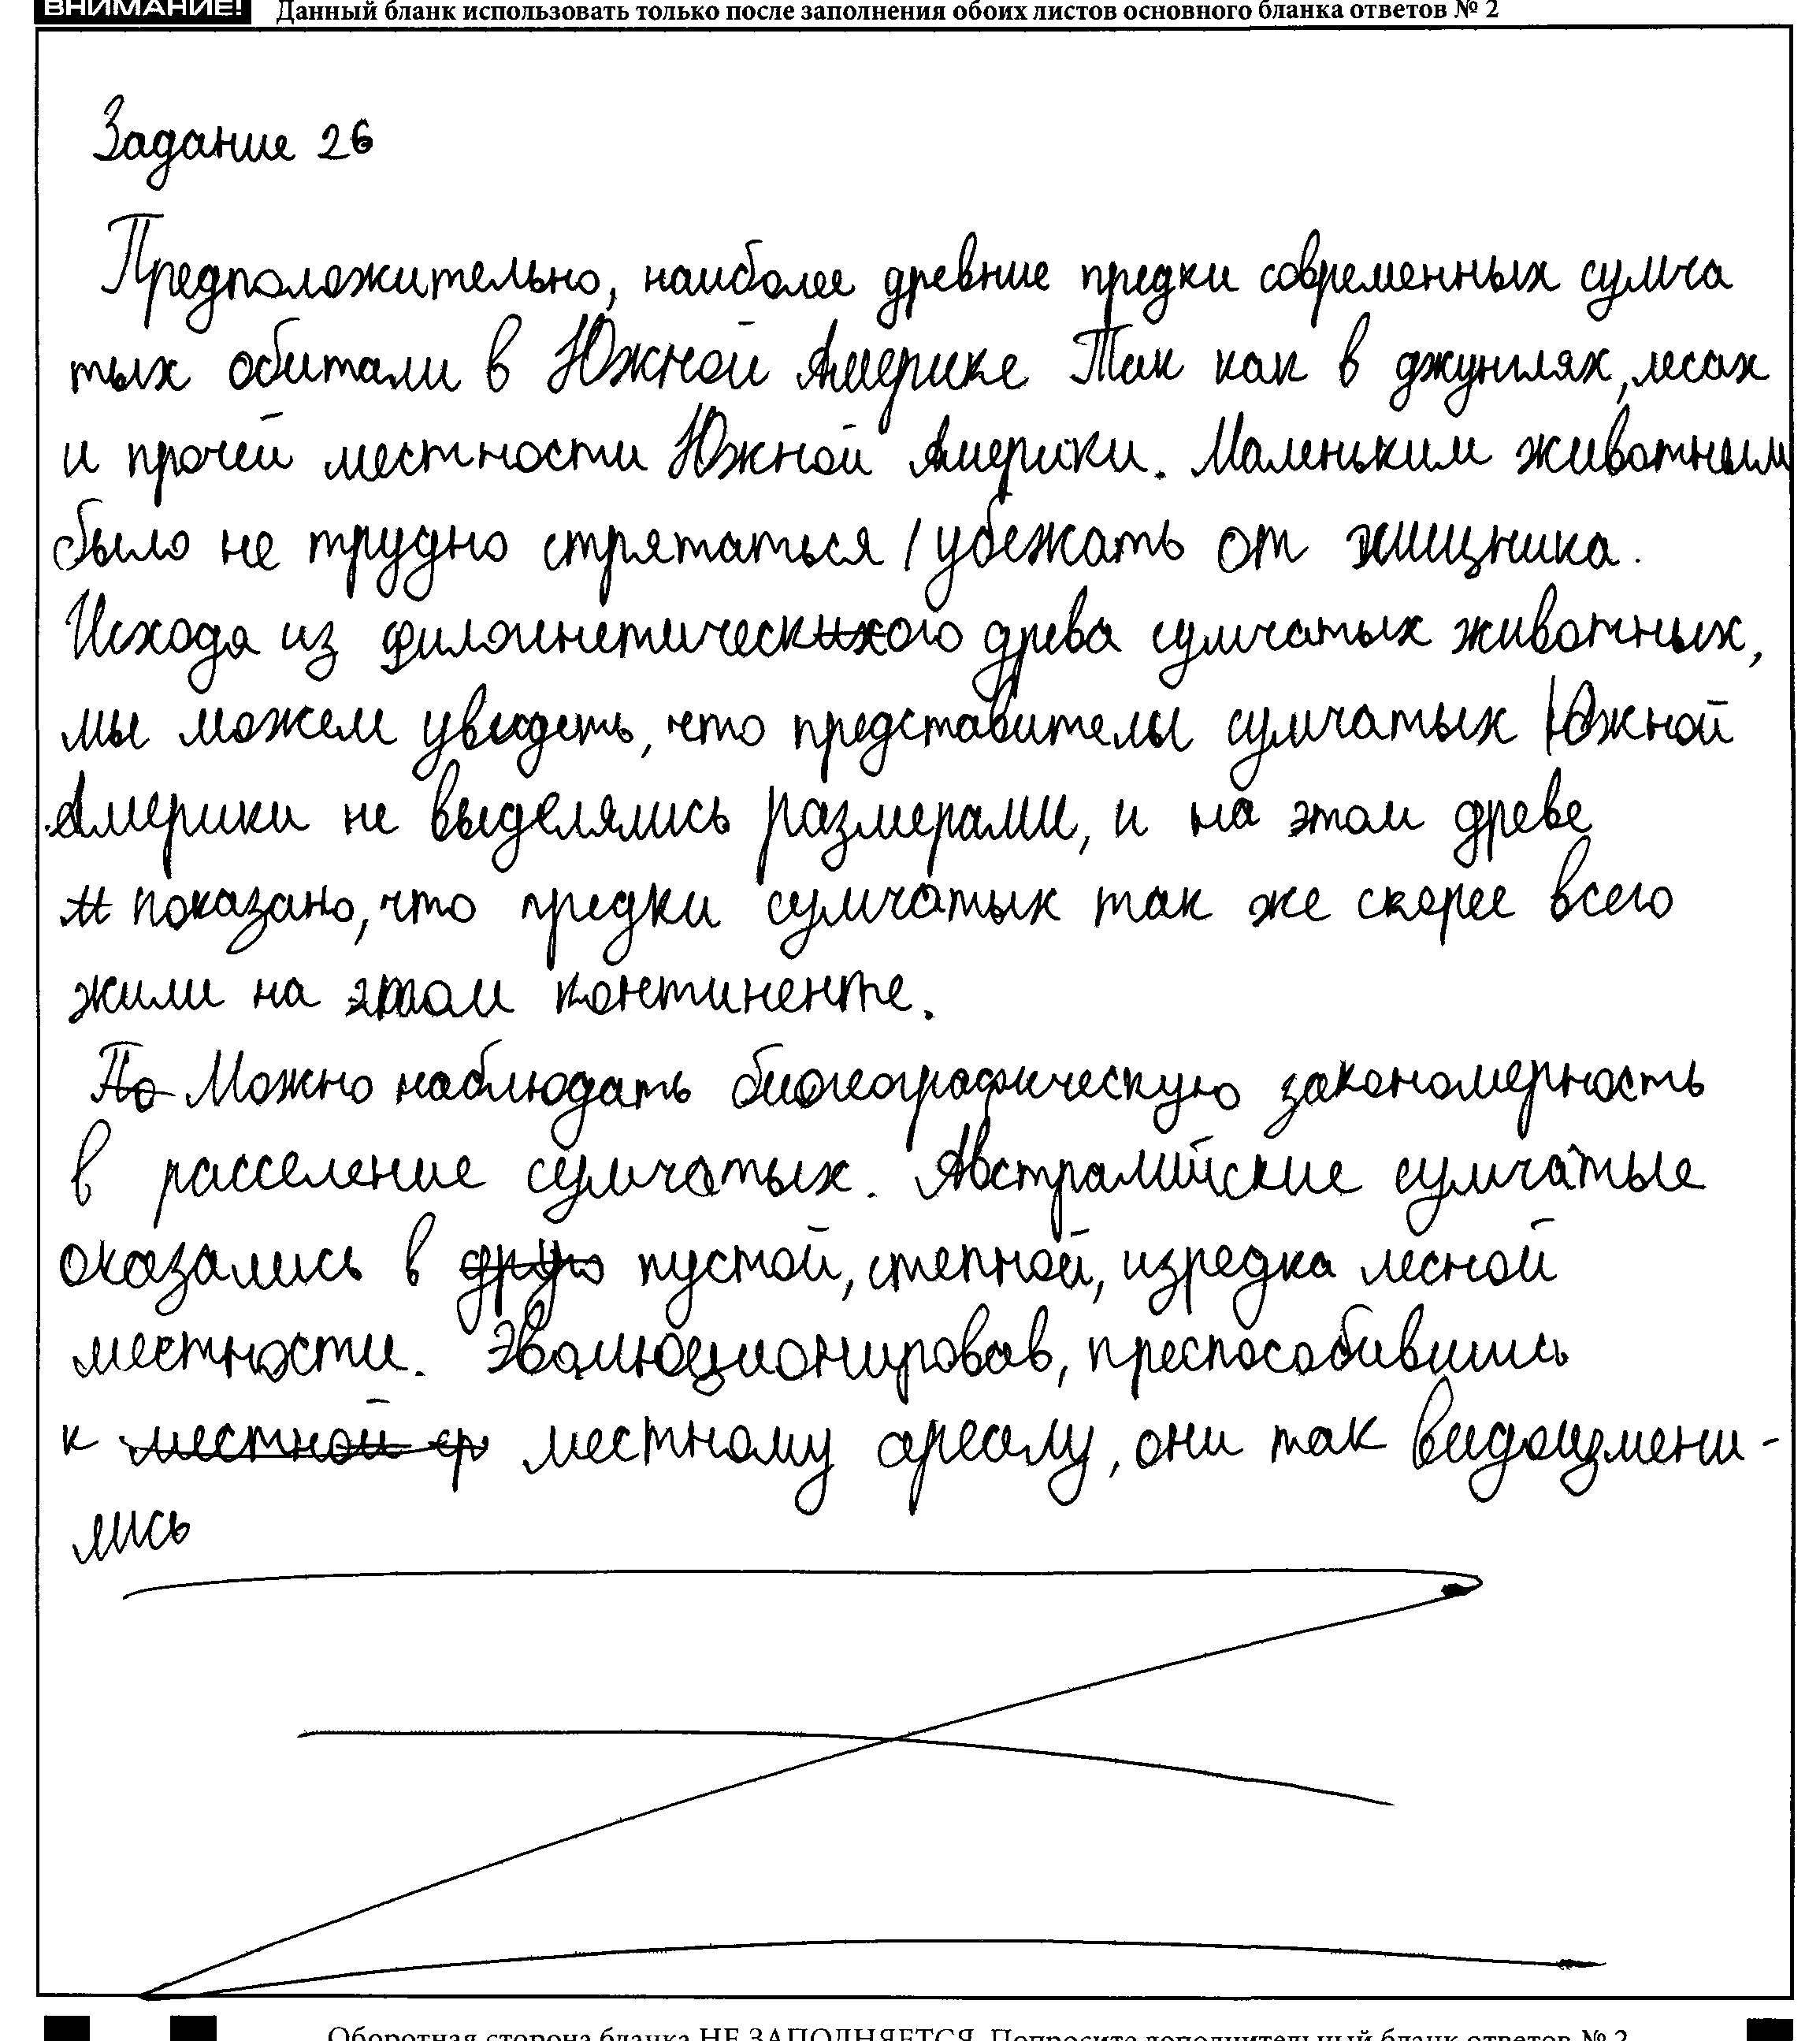 ВНИМАНИЕ! Данный бланк использовать только после заполнения обоих листов основного бланка ответов № 2
Задание 26
Предположительно, наиболее древние предки современных сумча
тых обитали в Южной Америке. Так как в джунглях, лесах
и прочей местности Южной Америки. Маленьким животным
было не трудно стрятаться / убежать от хищника.
Исходя из филогинетического древа сумчатых животных,
мы можем увидеть, что представители сумчатых Южной
Америки не выделялись размерами, и на этом древе
показано, что предки сумчатых так же скорее всего
жили на этом континенте.
По Можно наблюдать биогеографическую закономерность
в расселение сумчатых. Австралийские сумчатые
оказались в друго пустой, степной, изредка лесной
местности. Эволюционировав, преспособившись
к местной ср местному ареалу, они так видоизмени-
лись
Оборотная сторона бланка НЕ ЗАПОЛНЯЕТСЯ. Попросите дополнительный бланк ответов № 2